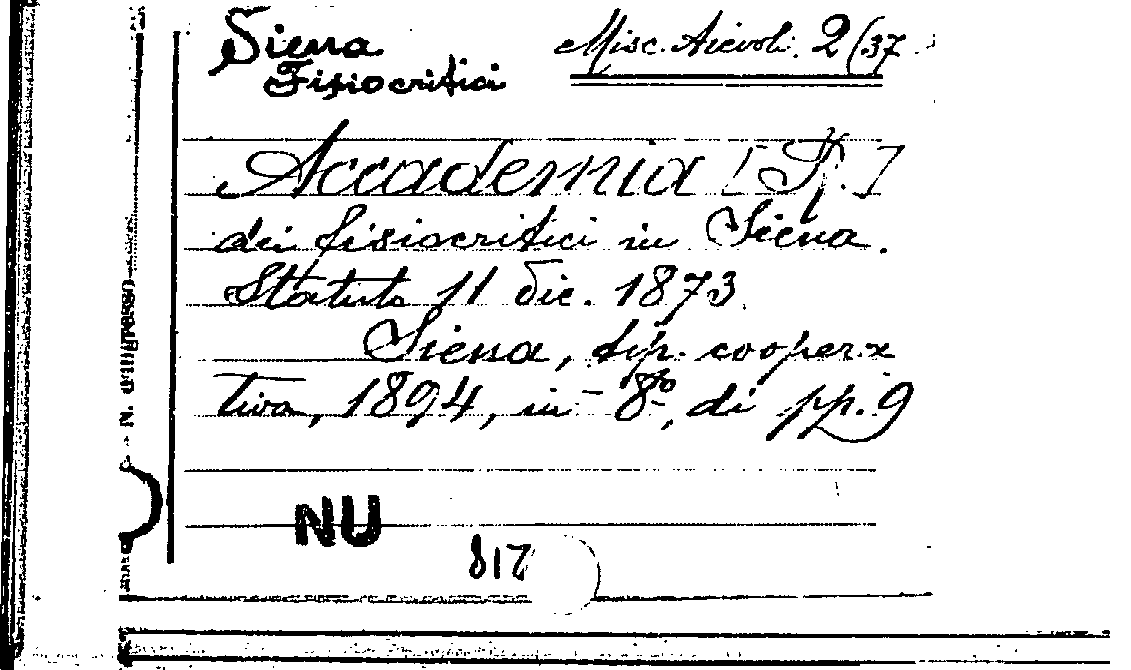 Siena Misc. Aievoli. 2/37
Fisiocritici
Accademia [R.]
dei fisiocritici in Siena.
Statuto 11 dic. 1873.
Siena, tip. coopera
tiva, 1894, in-8º, di pp. 9
NU
817